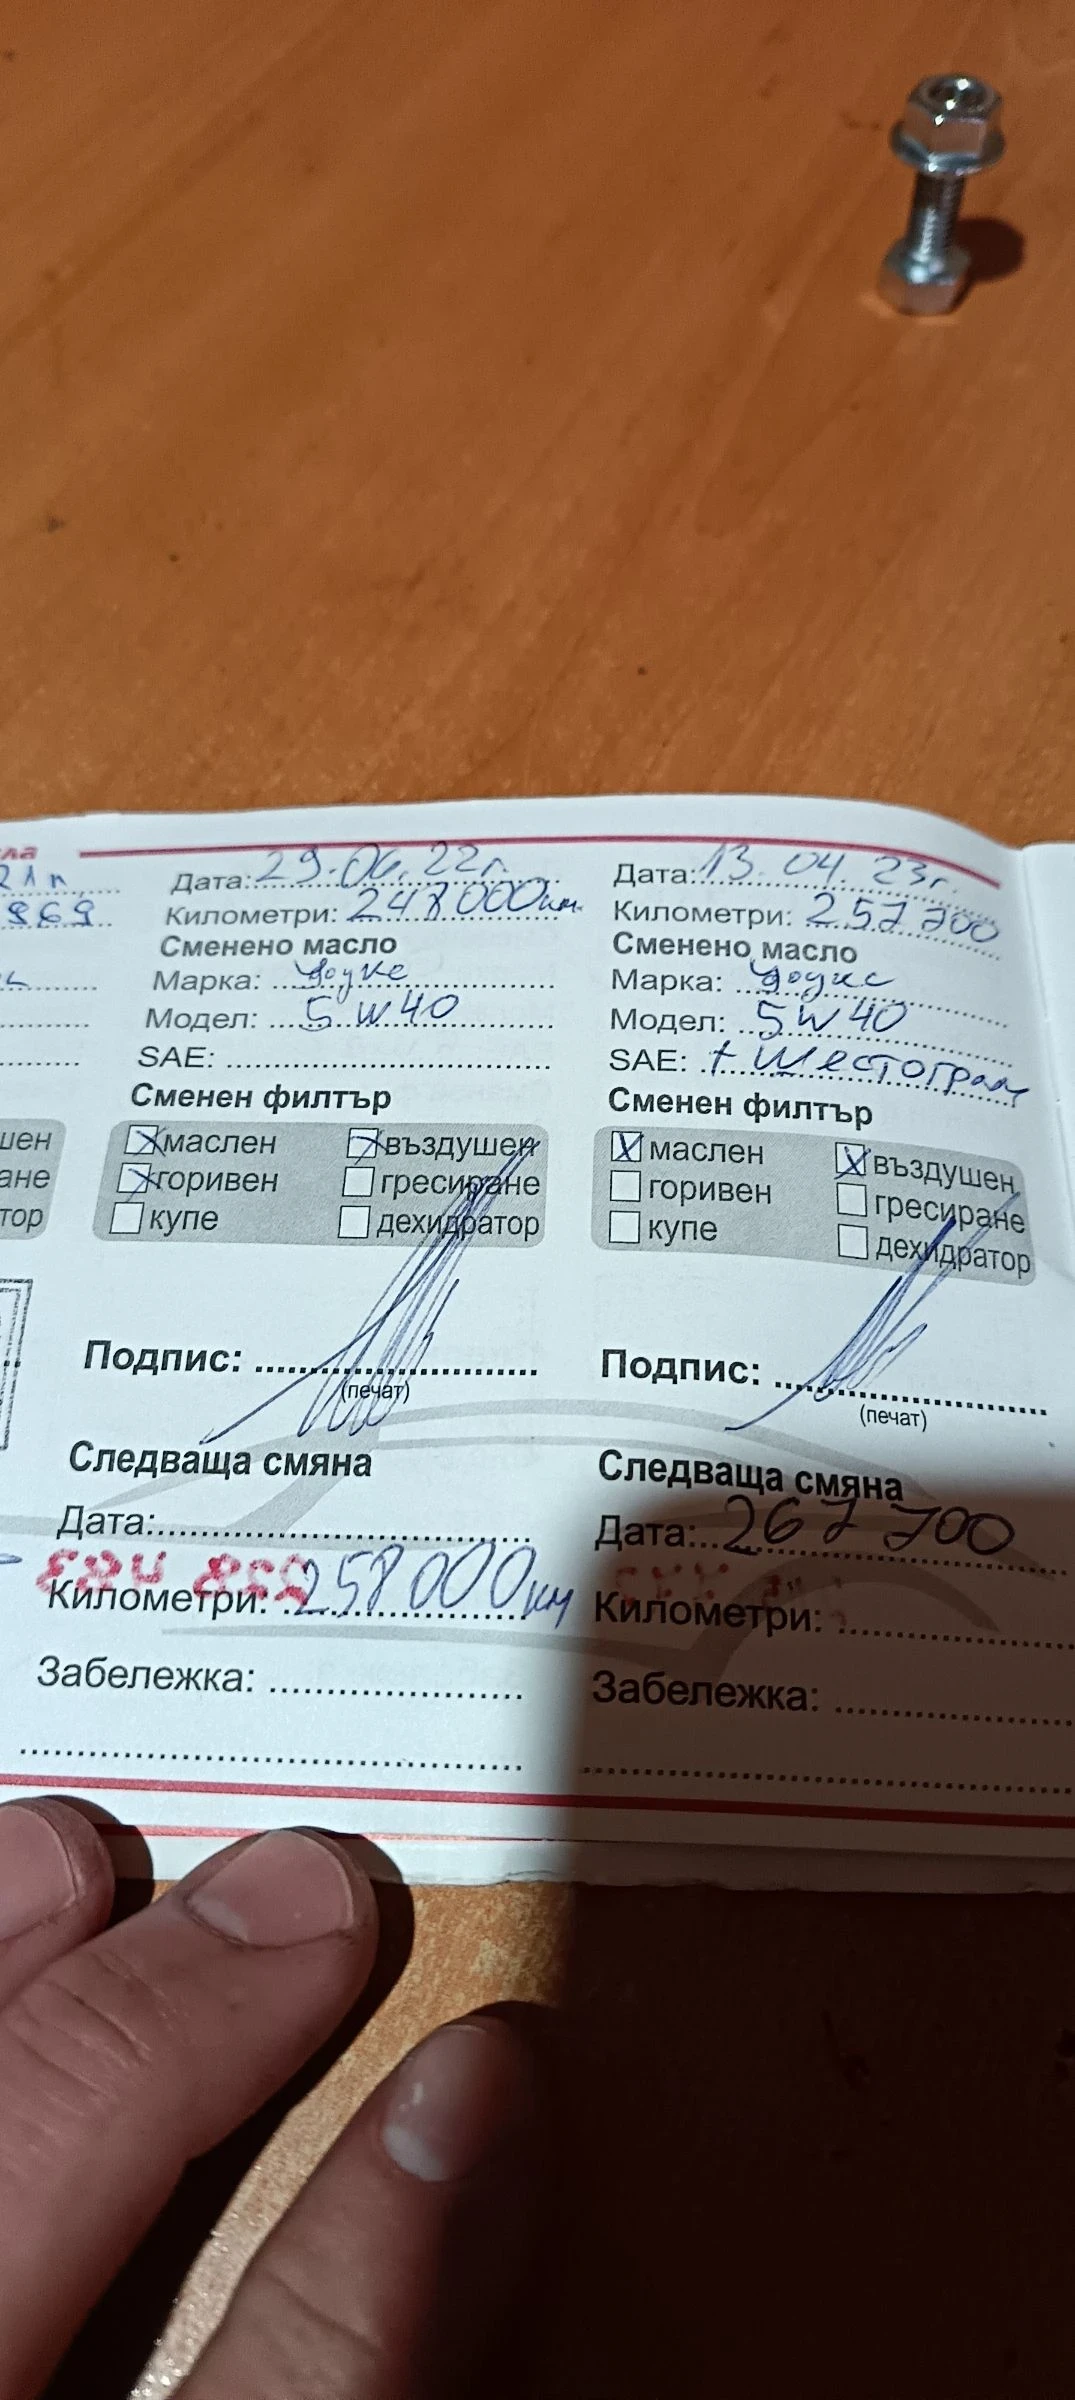 21г
869
шен
ане
тор
Дата: 29.06.22г.
Километри: 248000км
Сменено масло
Марка:
Модел: 5W40
SAE:
Сменен филтър
маслен въздушен
горивен гресиране
купе дехидратор
Подпис:
(печат)
Следваща смяна
Дата:
Километри: 258000км
Забележка:
Дата: 13.04.23г.
Километри: 257700
Сменено масло
Марка:
Модел: 5W40
SAE: + шестограм
Сменен филтър
маслен въздушен
горивен гресиране
купе дехидратор
Подпис:
(печат)
Следваща смяна
Дата: 267700
Километри:
Забележка: